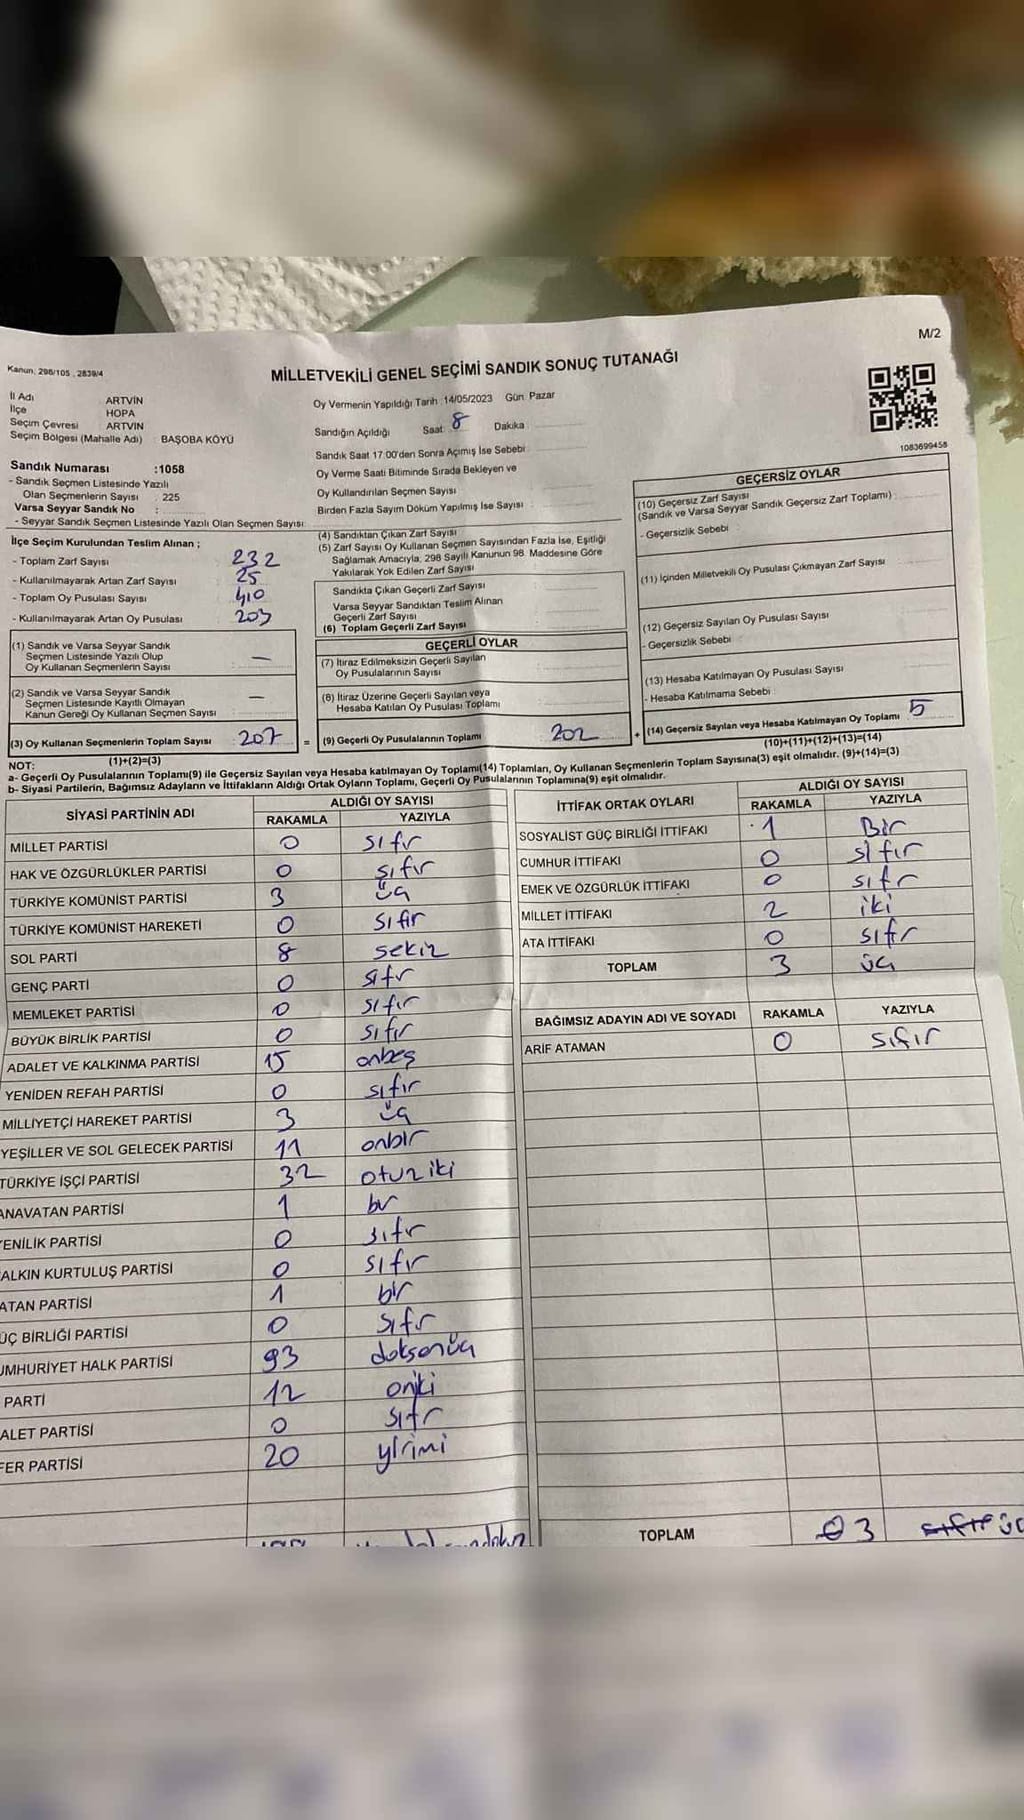 M/2
Kanun: 298/105 , 2839/4
MİLLETVEKİLİ GENEL SEÇİMİ SANDIK SONUÇ TUTANAĞI
İl Adı ARTVİN
İlçe HOPA
Seçim Çevresi ARTVİN
Seçim Bölgesi (Mahalle Adı) : BAŞOBA KÖYÜ
Sandık Numarası :1058
- Sandık Seçmen Listesinde Yazılı
Olan Seçmenlerin Sayısı : 225
Varsa Seyyar Sandık No :
- Seyyar Sandık Seçmen Listesinde Yazılı Olan Seçmen Sayısı:
Oy Vermenin Yapıldığı Tarih :14/05/2023 Gün :Pazar
Sandığın Açıldığı Saat: 8 Dakika :
Sandık Saat 17.00'den Sonra Açımış İse Sebebi :
Oy Verme Saati Bitiminde Sırada Bekleyen ve
Oy Kullandırılan Seçmen Sayısı :
Birden Fazla Sayım Döküm Yapılmış İse Sayısı :
1083699458
İlçe Seçim Kurulundan Teslim Alınan ;
- Toplam Zarf Sayısı 232
- Kullanılmayarak Artan Zarf Sayısı 25
- Toplam Oy Pusulası Sayısı 410
- Kullanılmayarak Artan Oy Pusulası 203
(1) Sandık ve Varsa Seyyar Sandık
Seçmen Listesinde Yazılı Olup
Oy Kullanan Seçmenlerin Sayısı —
(2) Sandık ve Varsa Seyyar Sandık
Seçmen Listesinde Kayıtlı Olmayan
Kanun Gereği Oy Kullanan Seçmen Sayısı —
(3) Oy Kullanan Seçmenlerin Toplam Sayısı 207
(1)+(2)=(3)
(4) Sandıktan Çıkan Zarf Sayısı
(5) Zarf Sayısı Oy Kullanan Seçmen Sayısından Fazla İse, Eşitliği
Sağlamak Amacıyla, 298 Sayılı Kanunun 98. Maddesine Göre
Yakılarak Yok Edilen Zarf Sayısı
Sandıkta Çıkan Geçerli Zarf Sayısı
Varsa Seyyar Sandıktan Teslim Alınan
Geçerli Zarf Sayısı
(6) Toplam Geçerli Zarf Sayısı
GEÇERLİ OYLAR
(7) İtiraz Edilmeksizin Geçerli Sayılan
Oy Pusulalarının Sayısı
(8) İtiraz Üzerine Geçerli Sayılan veya
Hesaba Katılan Oy Pusulası Toplamı
= (9) Geçerli Oy Pusulalarının Toplamı 202
GEÇERSİZ OYLAR
(10) Geçersiz Zarf Sayısı
(Sandık ve Varsa Seyyar Sandık Geçersiz Zarf Toplamı) :
- Geçersizlik Sebebi :
(11) İçinden Milletvekili Oy Pusulası Çıkmayan Zarf Sayısı
(12) Geçersiz Sayılan Oy Pusulası Sayısı
- Geçersizlik Sebebi :
(13) Hesaba Katılmayan Oy Pusulası Sayısı
- Hesaba Katılmama Sebebi :
+ (14) Geçersiz Sayılan veya Hesaba Katılmayan Oy Toplamı 5
(10)+(11)+(12)+(13)=(14)
NOT:
a- Geçerli Oy Pusulalarının Toplamı(9) ile Geçersiz Sayılan veya Hesaba katılmayan Oy Toplamı(14) Toplamları, Oy Kullanan Seçmenlerin Toplam Sayısına(3) eşit olmalıdır. (9)+(14)=(3)
b- Siyasi Partilerin, Bağımsız Adayların ve İttifakların Aldığı Ortak Oyların Toplamı, Geçerli Oy Pusulalarının Toplamına(9) eşit olmalıdır.
SİYASİ PARTİNİN ADI ALDIĞI OY SAYISI
RAKAMLA YAZIYLA
MİLLET PARTİSİ 0 sıfr
HAK VE ÖZGÜRLÜKLER PARTİSİ 0 sıfır
TÜRKİYE KOMÜNİST PARTİSİ 3 üç
TÜRKİYE KOMÜNİST HAREKETİ 0 sıfır
SOL PARTİ 8 sekiz
GENÇ PARTİ 0 sıfr
MEMLEKET PARTİSİ 0 sıfır
BÜYÜK BİRLİK PARTİSİ 0 sıfır
ADALET VE KALKINMA PARTİSİ 15 onbeş
YENİDEN REFAH PARTİSİ 0 sıfır
MİLLİYETÇİ HAREKET PARTİSİ 3 üç
YEŞİLLER VE SOL GELECEK PARTİSİ 11 onbir
TÜRKİYE İŞÇİ PARTİSİ 32 otuz iki
ANAVATAN PARTİSİ 1 bir
YENİLİK PARTİSİ 0 sıfır
ALKIN KURTULUŞ PARTİSİ 0 sıfır
ATAN PARTİSİ 1 bir
ÜÇ BİRLİĞİ PARTİSİ 0 sıfır
UMHURİYET HALK PARTİSİ 93 doksanüç
PARTİ 12 oniki
ALET PARTİSİ 0 sıfr
FER PARTİSİ 20 yirimi
İTTİFAK ORTAK OYLARI ALDIĞI OY SAYISI
RAKAMLA YAZIYLA
SOSYALİST GÜÇ BİRLİĞİ İTTİFAKI 1 Bir
CUMHUR İTTİFAKI 0 sıfır
EMEK VE ÖZGÜRLÜK İTTİFAKI 0 sıfr
MİLLET İTTİFAKI 2 iki
ATA İTTİFAKI 0 sıfır
TOPLAM 3 üç
BAĞIMSIZ ADAYIN ADI VE SOYADI RAKAMLA YAZIYLA
ARİF ATAMAN 0 sıfır
TOPLAM 0 3 sıfır üç